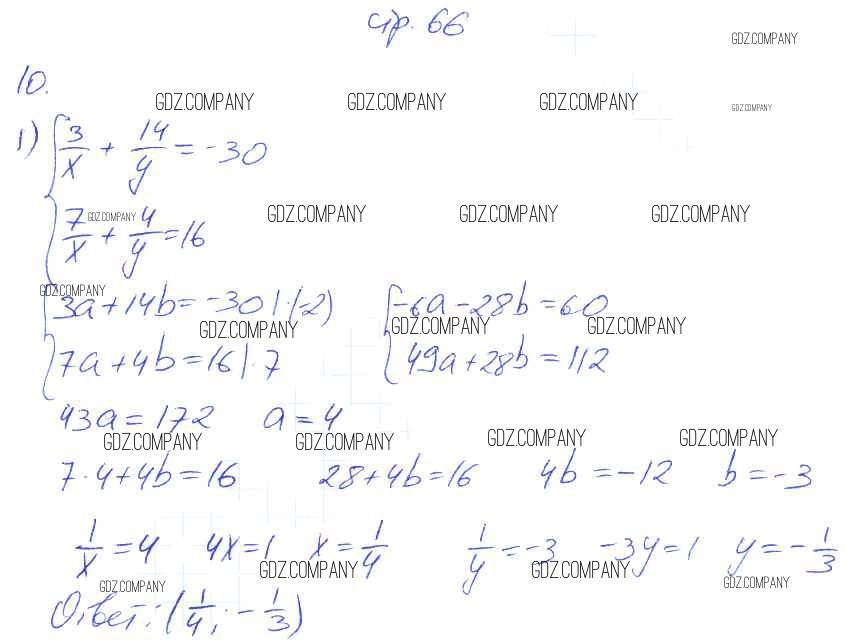 стр. 66
GDZ.COMPANY
10.
GDZ.COMPANY GDZ.COMPANY GDZ.COMPANY GDZ.COMPANY
1) { 3/x + 14/y = -30
GDZ.COMPANY GDZ.COMPANY GDZ.COMPANY GDZ.COMPANY
7/x + 4/y = 16
GDZ.COMPANY
{ 3a + 14b = -30 | · (-2) { -6a - 28b = 60
GDZ.COMPANY GDZ.COMPANY GDZ.COMPANY
7a + 4b = 16 | · 7 49a + 28b = 112
43a = 172 a = 4
GDZ.COMPANY GDZ.COMPANY GDZ.COMPANY GDZ.COMPANY
7 · 4 + 4b = 16 28 + 4b = 16 4b = -12 b = -3
1/x = 4 4x = 1 x = 1/4 1/y = -3 -3y = 1 y = -1/3
GDZ.COMPANY GDZ.COMPANY
GDZ.COMPANY GDZ.COMPANY
Ответ: (1/4; -1/3)